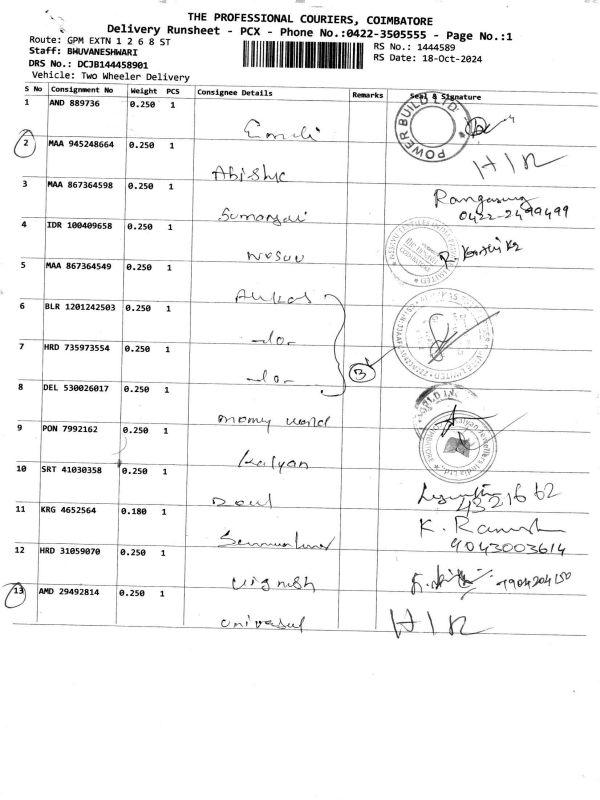 THE PROFESSIONAL COURIERS, COIMBATORE
Delivery Runsheet - PCX - Phone No.:0422-3505555 - Page No.:1
Route: GPM EXTN 1 2 6 8 ST
RS No.: 1444589
Staff: BHUVANESHWARI
RS Date: 18-Oct-2024
DRS No.: DCJB144458901
Vehicle: Two Wheeler Delivery
S No Consignment No Weight PCS Consignee Details Remarks Seal & Signature
1 AND 889736 0.250 1
POWER BUILD LTD.
2 MAA 945248664 0.250 1
Abishe HIR
3 MAA 867364598 0.250 1
0422-2499499
4 IDR 100409658 0.250 1
5 MAA 867364549 0.250 1
6 BLR 1201242503 0.250 1
-do-
7 HRD 735973554 0.250 1
-do- 3
8 DEL 530026017 0.250 1
money world
9 PON 7992162 0.250 1
kalyan
10 SRT 41030358 0.250 1
4321662
11 KRG 4652564 0.180 1
K. Ramesh
9043003614
12 HRD 31059070 0.250 1
Vignesh
13 AMD 29492814 0.250 1
Universal HIR